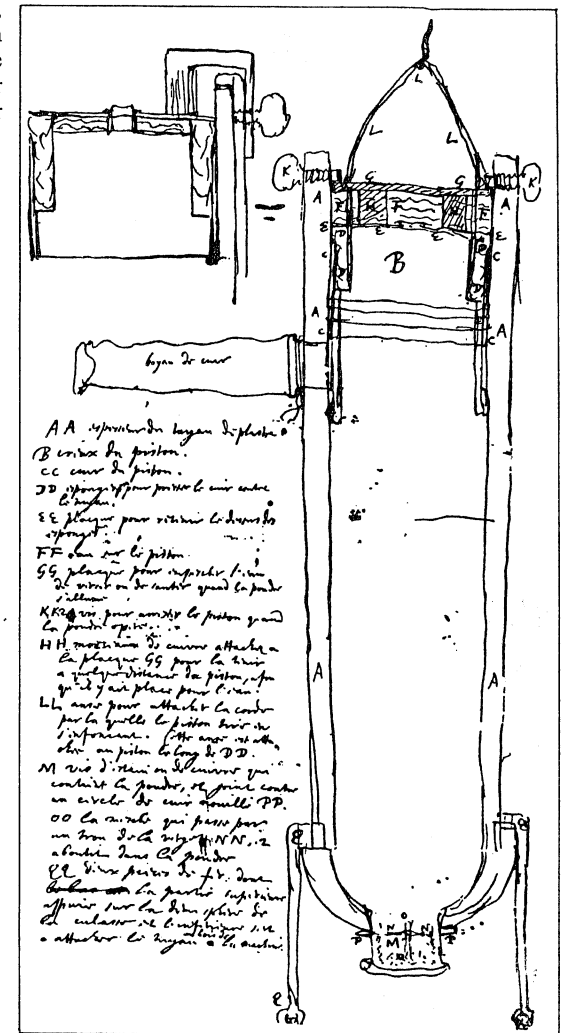 boyau de cuir
AA espaisseur du tuyau de plastre.
B creux du piston.
CC cuir du piston.
DD esponges pour presser le cuir contre
le tuyau.
EE placque pour retenir le dessus des
esponges.
FF eau sur le piston
GG placque pour empescher l'eau
de verser ou de sautir quand la poudre
s'allume
KK 2 vis pour arrester le piston quand
la poudre opere.
HH morceaux de cuivre attachez a
la placque GG pour la tenir
a quelque distance du piston, afin
qu'il y ait place pour l'eau.
LL anse pour attacher la corde
par laquelle le piston doit
s'enfoncant. Cette anse est atta
chée au piston le long de DD.
M vis d'estain ou de cuivre qui
contient la poudre, et joint contre
un circle de cuir mouillé PP.
OO la mesche qui passe par
un trou de la NN, et
aboutit dans la poudre
QQ deux pieces de fer dont
la partie superieure
appuie sur la de
la culasse et l'inferieure
attacher le tuyau a la machine.
L
L
L
K
G
G
K
A
F
H
F
H
F
A
E
D
E
E
D
E
C
B
C
D
D
A
C
A
C
A
A
Q
Q
O
P
N
N
P
M
Q